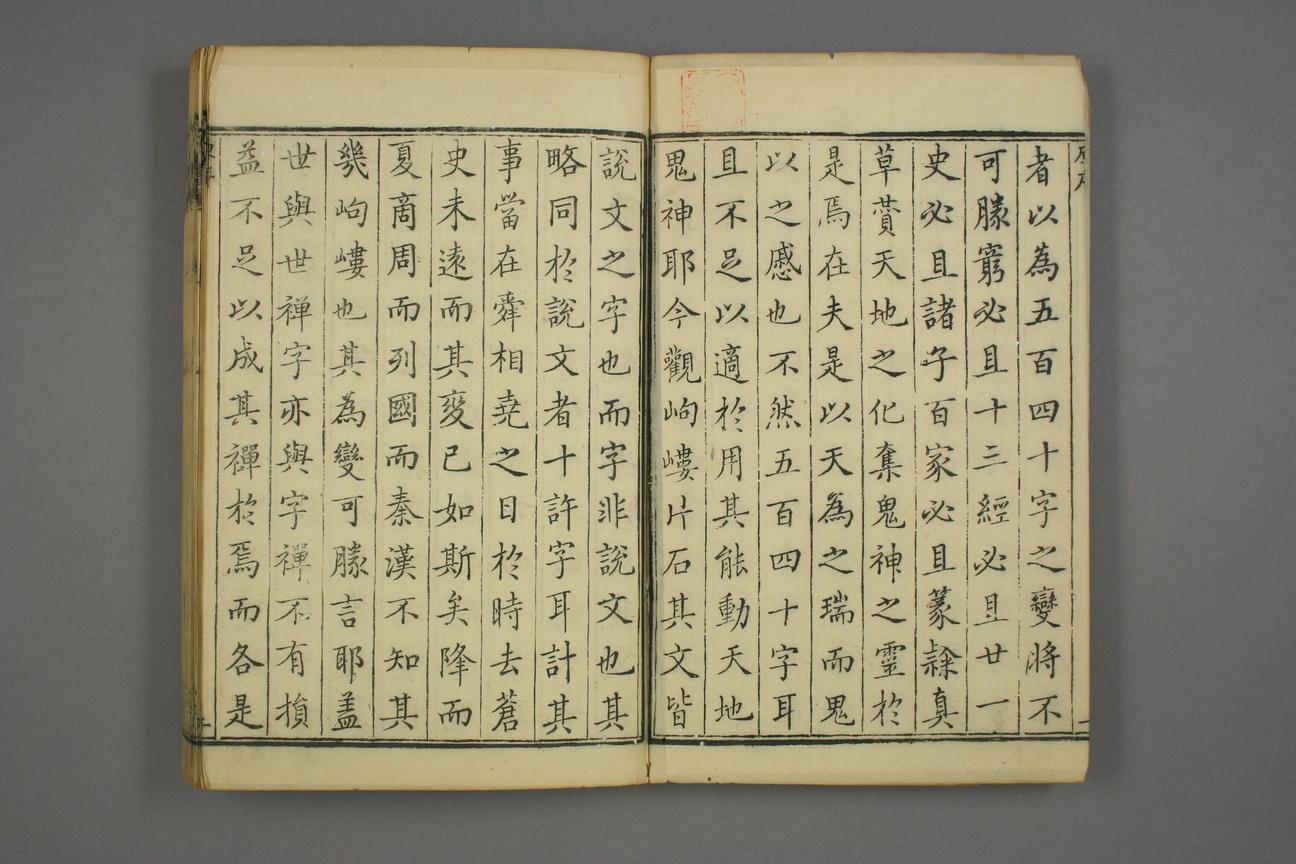 者以為五百四十字之變將不
可勝窮必且十三經必且廿一
史必且諸子百家必且篆隸真
草贊天地之化奪鬼神之靈於
是焉在夫是以天為之瑞而鬼
以之慼也不然五百四十字耳
且不足以適於用其能動天地
鬼神耶今觀岣嶁片石其文皆
說文之字也而字非說文也其
略同於說文者十許字耳計其
事當在舜相堯之日於時去蒼
史未遠而其変已如斯矣降而
夏商周而列國而秦漢不知其
幾岣嶁也其為變可勝言耶盖
世與世禅字亦與字禪不有損
益不足以成其禪於焉而各是